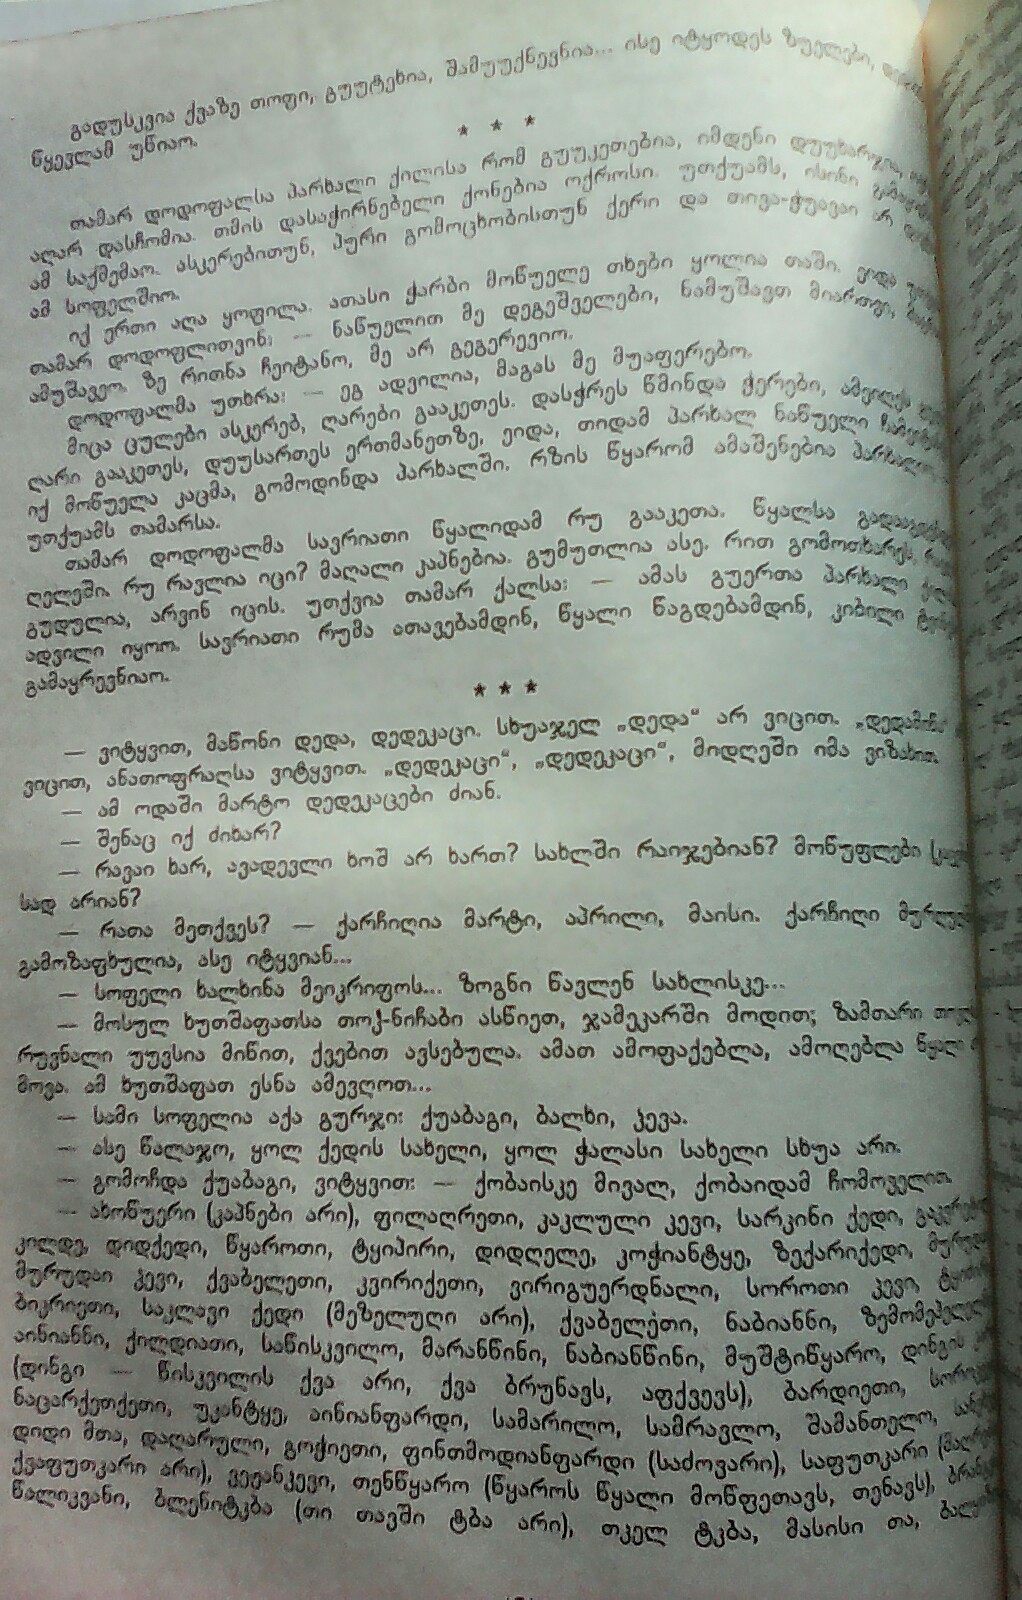 გადუსკვია ქვაზე თოფი, გუუტეხია, შამუუქნევნია... ისე იტყოდეს ზუელები,
წყევლამ უწიაო.
* * *
თამარ დოდოფალსა პარხალი ქილისა რომ გუუკეთებია, იმდენი დუუხარჯია,
აღარ დასჩომია. თმის დასაჭირნებელი ქონებია ოქროსი. უთქუამს, ისინი
ამ საქმემაო. ასკერებითუნ, პური გომოცხობისთუნ ქერი და თივა-ჭუავაი არ
ამ სოფელშიო.
იქ ერთი აღა ყოფილა. ათასი ჭარბი მოწუელე თხები ყოლია თაში. ეიდა
თამარ დოდოფლითვინ: — ნაწუელით მე დეგეშველები, ნამუშავთ მიართვი,
ამუშავეო. ზე რითნა ჩეიტანო, მე არ გეგერევიო.
დოდოფალმა უთხრა: — ეგ ადვილია, მაგას მე მუაფერებო.
მიცა ცულები ასკერებ, ღარები გააკეთეს. დასჭრეს წმინდა ჭერები,
ღარი გააკეთეს, დუუსართეს ერთმანეთზე, ეიდა, თიდამ პარხალ ნაწუელი
იქ მოწუელა კაცმა, გომოდინდა პარხალში. რზის წყარომ ამაშენებია
უთქუამს თამარსა.
თამარ დოდოფალმა სავრიათი წყალიდამ რუ გააკეთა. წყალსა
ღელეში. რუ რავლია იცი? მაღალი კაპნებია. გუმუთლია ასე. რით გომოთხარეს,
გუდულია, არვინ იცის. უთქვია თამარ ქალსა: — ამას გუერთა პარხალი
ადვილი იყოო. სავრიათი რუმა ათავებამდინ, წყალი წაგდებამდინ, კიბილი
გამაყრევნიაო.
* * *
— ვიტყვით, მაწონი დედა, დედეკაცი. სხუაჯელ „დედა“ არ ვიცით.
ვიცით, ანათოფრაღსა ვიტყვით. „დედეკაცი“, „დედეკაცი“, მიდღეში იმა ვიზახით.
— ამ ოდაში მარტო დედეკაცები ძიან.
— შენაც იქ ძიხარ?
— რავაი ხარ, ავადევლი ხოშ არ ხართ? სახლში რაიჯებიან? მოწუფლები
სად არიან?
— რათა მეთქვეს? — ქარჩიღია მარტი, აპრილი, მაისი. ქარჩიღი
გამოზაფხულია, ასე იტყვიან...
— სოფელი ხალხინა მეიკრიფოს... ზოგნი წავლენ სახლისკე...
— მოსულ ხუთშაფათსა თოკ-ნიჩაბი ასწიეთ, ჯამეკარში მოდით; ზამთარი
რუვნალი უუვსია მიწით, ქვებით ავსებულა. ამათ ამოფაქებლა, ამოღებლა
მოვა. ამ ხუთშაფათ ესნა ამევღოთ...
— სამი სოფელია აქა გურჯი: ქუაბაგი, ბალხი, კევა.
— ასე წალაჯო, ყოლ ქედის სახელი, ყოლ ჭალასი სახელი სხუა არი.
— გომოჩდა ქუაბაგი, ვიტყვით: — ქობაისკე მივალ, ქობაიდამ ჩომოველით.
— ახოწუერი (კაპნები არი), ფილაღრეთი, კაკლული კევი, სარკინი ქედი,
კილდე, დიდქედი, წყაროთი, ტყიპირი, დიდღელე, კოჭიანტყე, ზექარიქედი,
მურუდაი კევი, ქვაბელეთი, კვირიქეთი, ვირიგუერდნალი, სოროთი კევი,
ბიკრიეთი, საკლავი ქედი (მეზელული არი), ქვაბელეთი, ნაბიანნი,
აინიანნი, ქილდიათი, საწისკვილო, მარანწინი, ნაბიანწინი, მუშტიწყარო, დინგის
(დინგი — წისკვილის ქვა არი, ქვა ბრუნავს, აფქვევს), ბარდიეთი,
ნაცარქეთქეთი, უკანტყე, აინიანფარდი, სამარილო, სამრავლო, შამანთელო,
დიდი მთა, დაღარული, გოჭიეთი, ფინთმოდიანფარდი (საძოვარი), საფუთკარი
ქვაფუთკარი არი), ვეჟანკევი, თენწყარო (წყაროს წყალი მოწფეთავს, თენავს),
წალიკვანი, ბლენიტკბა (თი თავში ტბა არი), თკელ ტკბა, მასისი თა,